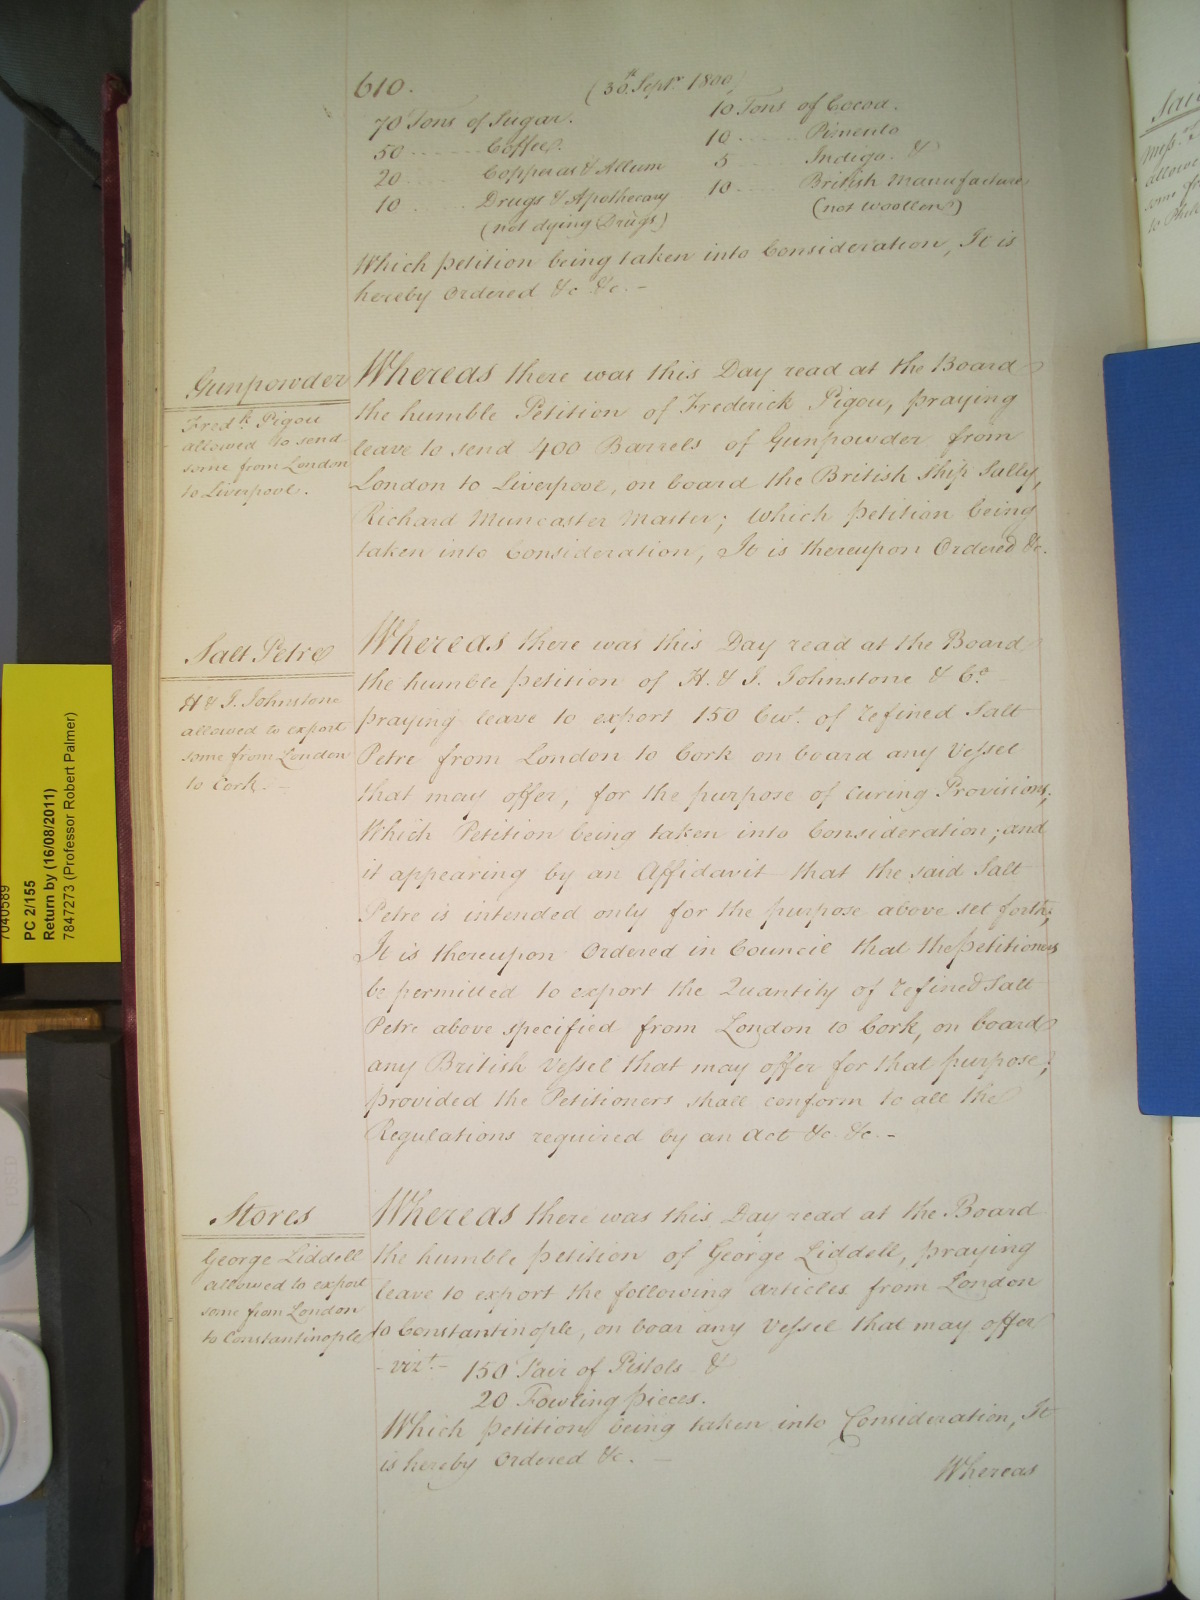 610.
(30th Septr 1800)
70 Tons of Sugar.
50 ........ Coffee.
20 ........ Copperas & Allum
10 ........ Drugs & Apothecary
(not dying Drugs)
10 Tons of Cocoa.
10 ..... Pimento
5 ..... Indigo. &
10 ..... British Manufactures
(not woollens)
Which petition being taken into Consideration, It is
hereby Ordered &c &c. -
Gunpowder
Fredk Pigou
allowed to send
some from London
to Liverpool.
Whereas there was this Day read at the Board
the humble Petition of Frederick Pigou, praying
leave to send 400 Barrels of Gunpowder from
London to Liverpool, on board the British Ship Sally,
Richard Muncaster Master; Which petition being
taken into Consideration, It is thereupon Ordered &c.
Salt Petre
H & J. Johnstone
allowed to export
some from London
to Cork. -
Whereas there was this Day read at the Board
the humble petition of H. & J. Johnstone & Co.
praying leave to export 150 Cwt. of refined Salt
Petre from London to Cork on board any Vessel
that may offer, for the purpose of curing Provisions;
Which Petition being taken into Consideration; and
it appearing by an Affidavit that the said Salt
Petre is intended only for the purpose above set forth;
It is thereupon Ordered in Council that the petitioners
be permitted to export the Quantity of refined Salt
Petre above specified from London to Cork, on board
any British Vessel that may offer for that purpose;
provided the Petitioners shall conform to all the
Regulations required by an Act &c. &c. -
Stores
George Liddell
allowed to export
some from London
to Constantinople
Whereas there was this Day read at the Board
the humble petition of George Liddell, praying
leave to export the following articles from London
to Constantinople, on boar any Vessel that may offer
- vizt. - 150 Pair of Pistols &
20 Fowling pieces.
Which petition being taken into Consideration, It
is hereby Ordered &c. -
Whereas
7040589
PC 2/155
Return by (16/08/2011)
7847273 (Professor Robert Palmer)
Messrs
allowe
some fr
to Phil